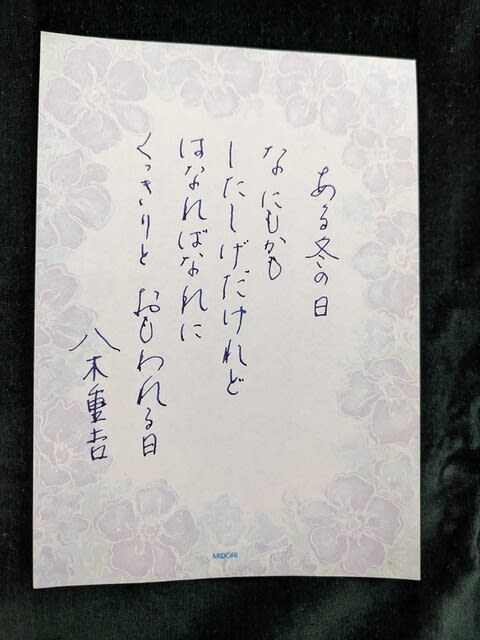 ある冬の日
なにもかも
したしげだけれど
はなればなれに
くっきりと おもわれる日
八木重吉
MIDORI